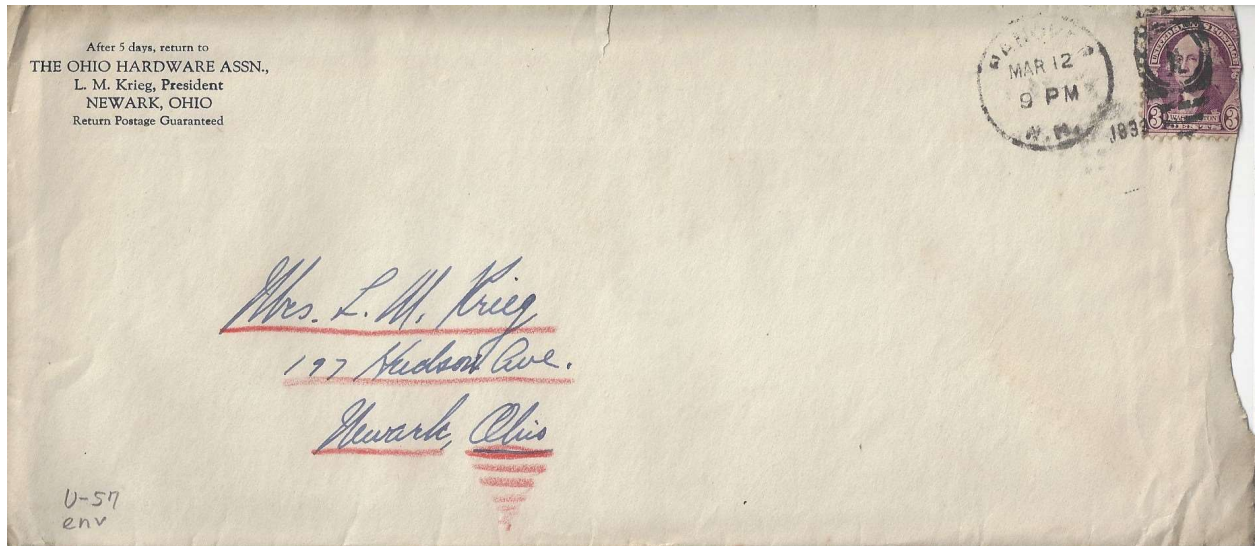 After 5 days, return to
THE OHIO HARDWARE ASSN.,
L. M. Krieg, President
NEWARK, OHIO
Return Postage Guaranteed
MAR 12
9 PM
UNITED STATES POSTAGE
3 3
Mrs. L. M. Krieg
197 Hudson Ave.
Newark, Ohio
U-57
env